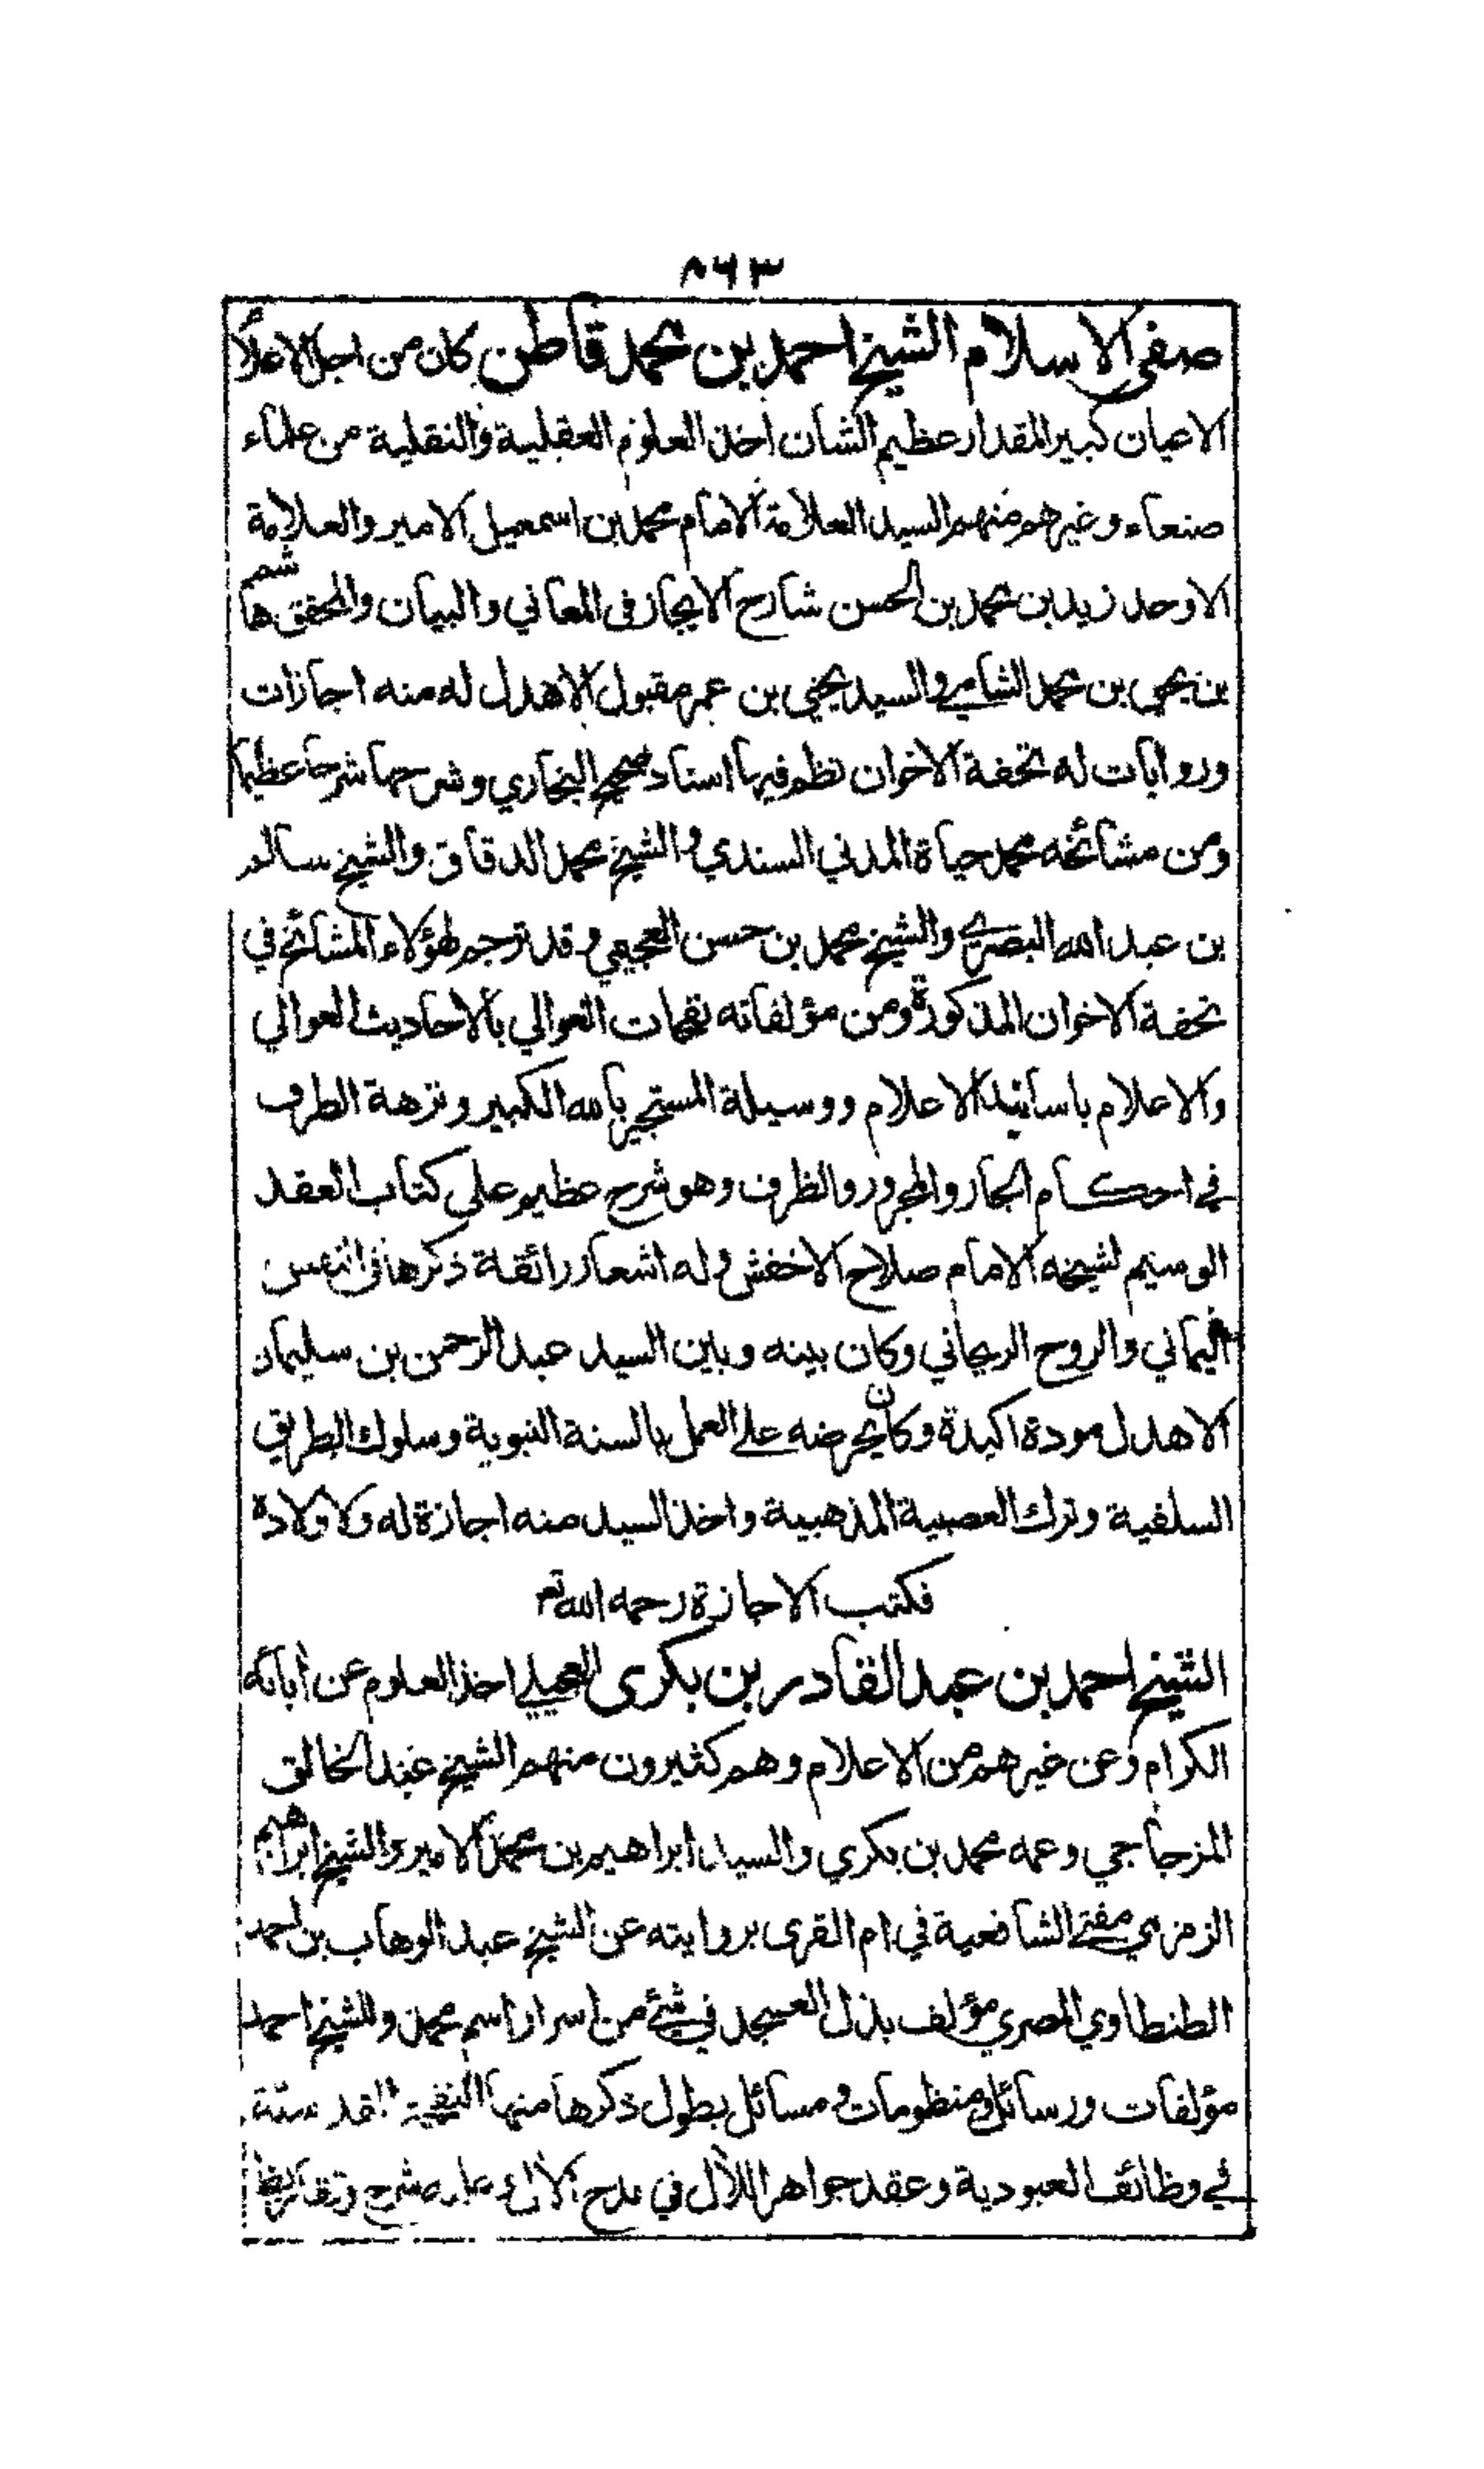 ٨٦٣
صفي الاسلام الشيخ احمد بن محمد قاطن كان من اجل الاعلام
الاعيان كبير المقدار عظيم الشان اخذ العلوم العقلية والنقلية من علماء
صنعاء وغيرهم منهم السيد العلامة الامام محمد بن اسمعيل الامير والعلامة
الاوحد زيد بن محمد بن الحسن شارح الايجاز في المعاني والبيان والمحقق هاشم
بن يحيى بن محمد الشامي والسيد يحيى بن عمر مقبول الاهدل له منه اجازات
وروايات له تحفة الاخوان نظم فيها اسناد صحيح البخاري وشرحها شرحا عظيما
ومن مشائخه محمد حياة المدني السندي والشيخ محمد الدقاق والشيخ سالم
بن عبد الله البصري والشيخ محمد بن حسن العجيمي وقد ترجم لهؤلاء المشائخ في
تحفة الاخوان المذكورة ومن مؤلفاته نفحات الغوالي بالاحاديث العوالي
والاعلام باسانيد الاعلام ووسيلة المستجير بالله الكبير ونزهة الطرف
في احكام الجار والمجرور والظرف وهو شرح عظيم على كتاب العقد
الوسيم لشيخه الامام صلاح الاخفش وله اشعار رائقة ذكرها في النفس
اليماني والروح الريحاني وكان بينه وبين السيد عبد الرحمن بن سليمان
الاهدل مودة اكيدة وكان يحرضه على العمل بالسنة النبوية وسلوك الطريق
السلفية وترك العصبية المذهبية واخذ السيد منه اجازة له ولاولاده
فكتب الاجازة رحمه الله تعالى
الشيخ احمد بن عبد القادر بن بكرى العجيلي اخذ العلوم عن أبائه
الكرام وعن غيرهم من الاعلام وهم كثيرون منهم الشيخ عبد الخالق
المزجاجي وعمه محمد بن بكري والسيد ابراهيم بن محمد الامير والشيخ ابراهيم
الزمزمي مفتي الشافعية في ام القرى بروايته عن الشيخ عبد الوهاب بن احمد
الطنطاوي المصري مؤلف بذل العسجد في شئ من اسرار اسم محمد وللشيخ احمد
مؤلفات ورسائل ومنظومات ومسائل يطول ذكرها منها النفحة القدسية
في وظائف العبودية وعقد جواهر اللآل في مدح الآل وعليه شرح وتقاريظ